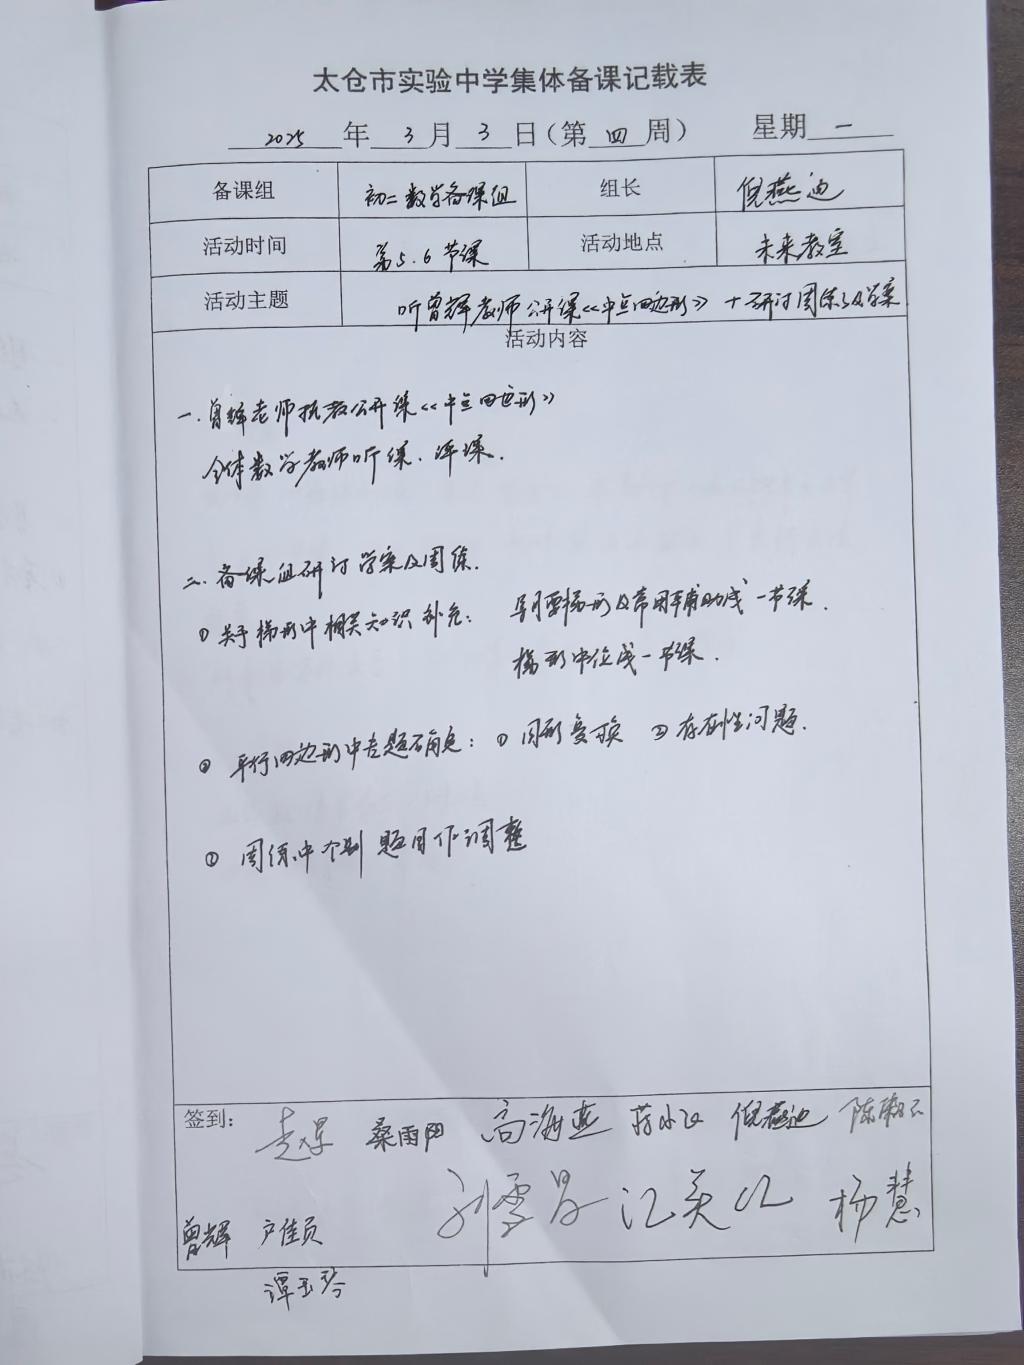 太仓市实验中学集体备课记载表
2025 年 3 月 3 日（第 四 周） 星期 一
备课组 初二数学备课组 组长 倪燕迪
活动时间 第5.6节课 活动地点 未来教室
活动主题 听曾辉老师公开课《中点四边形》+研讨周练及学案
活动内容
一.曾辉老师执教公开课《中点四边形》
全体数学教师听课.评课.
二.备课组研讨学案及周练.
① 关于梯形中相关知识补充： 等腰梯形及常用辅助线一节课.
梯形中位线一节课.
② 平行四边形中专题确定：① 图形变换 ② 存在性问题.
③ 周练中个别题目作调整
签到： 桑雨阳 高海燕 倪燕迪
曾辉 杨慧
谭玉琴